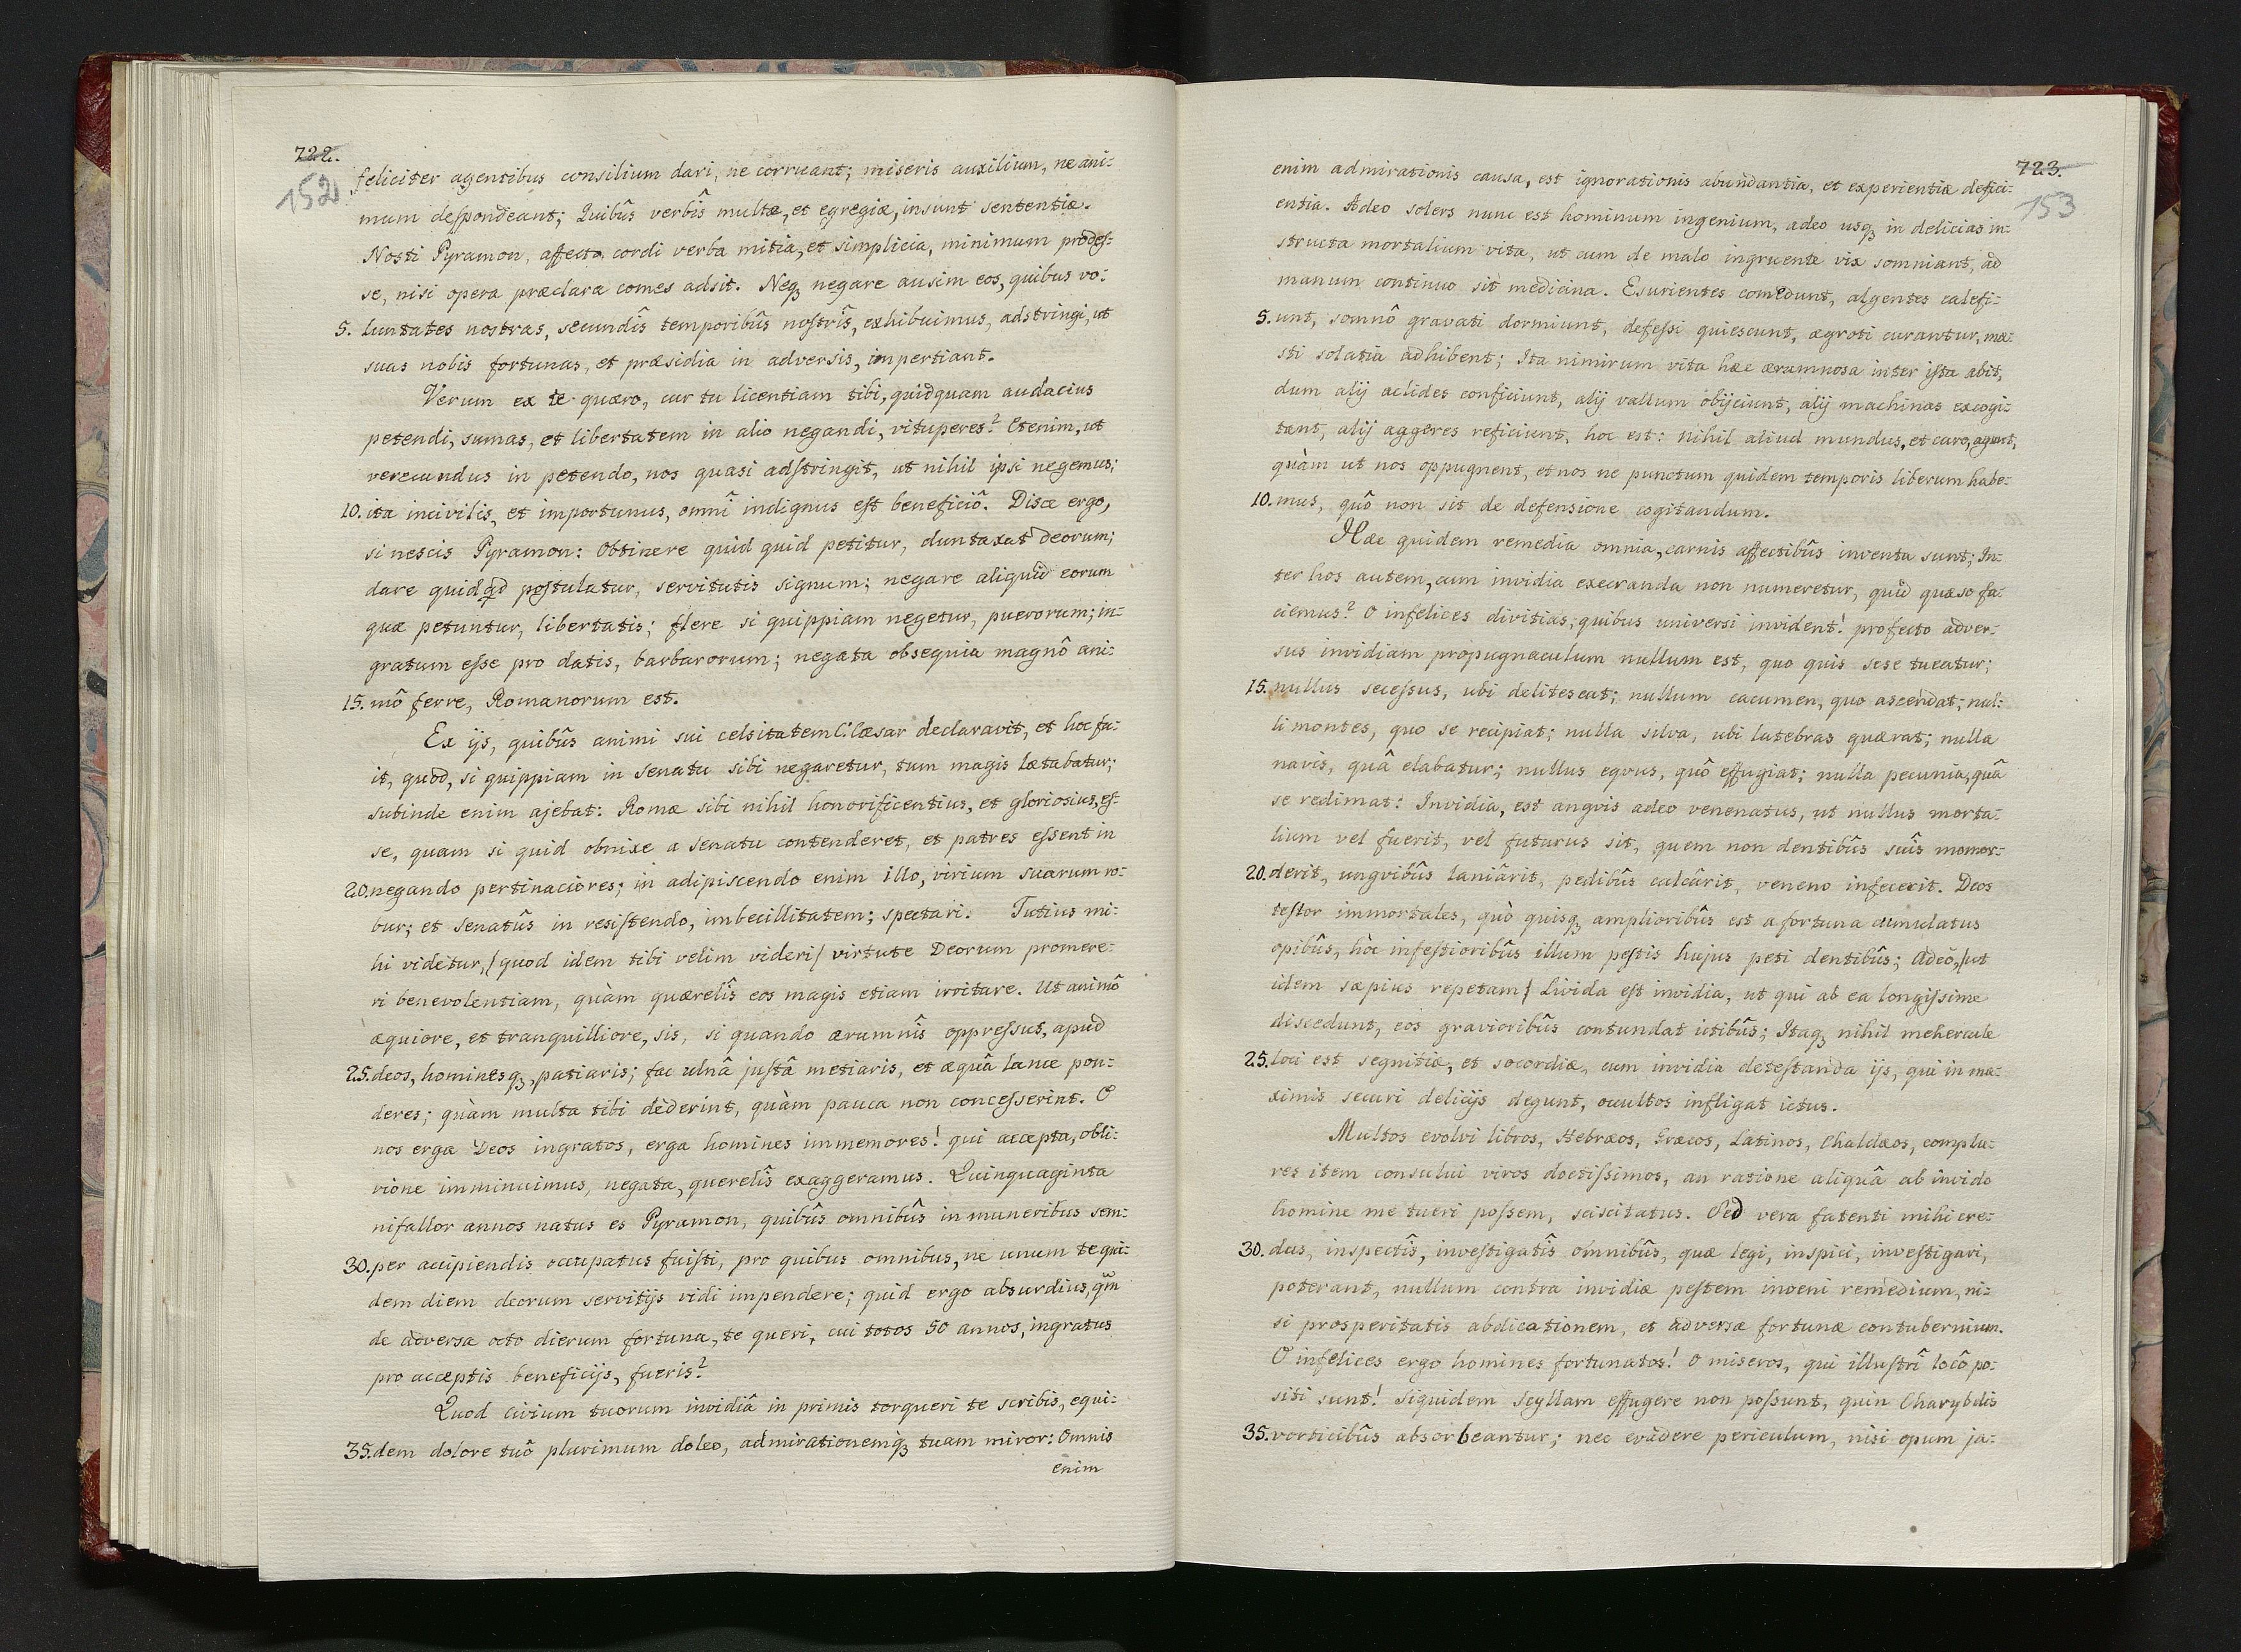 722.
152
feliciter agentibus consilium dari, ne corruant; miseris auxilium, ne ani-
mum deſpondeant; Quibûs verbîs multæ, et egregiæ, insunt sententiæ.
Nosti Pyramon, affecto cordi verba mitia, et simplicia, minimum prodeſ-
se, nisi opera præclara comes adsit. Neqꝫ negare ausim eos, quibus vo-
5. luntates nostras, secundîs temporibûs noſtrîs, exhibuimus, adstringi, ut
suas nobis fortunas, et præsidia in adversis, impertiant.
Verum ex te quæro, cur tu licentiam tibi, quidquam audacius
petendi, sumas, et libertatem in alio negandi, vituperes? Etenim, ut
verecundus in petendo, nos quasi adſtringit, ut nihil ipsi negemus;
10. ita incivilis, et importunus, omnî indignus eſt beneficiô. Disce ergo,
si nescis Pyramon: Obtinere quid quid petitur, duntaxat Deorum;
dare quidqd poſtulatur, servitutis signum; negare aliquid eorum
quæ petuntur, libertatis; flere si quippiam negetur, puerorum; in-
gratum eſse pro datis, barbarorum; negata obsequia magnô ani-
15. mô ferre, Romanorum est.
Ex ijs, quibûs animi sui celsitatem C: Cæsar declaravit, et hoc fu-
it, quod, si quippiam in senatu sibi negaretur, tum magis lætabatur;
subinde enim ajebat: Romæ sibi nihil honorificentius, et gloriosius, eſ-
se, quam si quid obnixe a senatu contenderet, et patres eſsent in
20. negando pertinaciores; in adipiscendo enim illo, virium suarum ro-
bur; et senatûs in resiſtendo, imbecillitatem; spectari. Tutius mi-
hi videtur, /quod idem tibi velim videri/ virtute Deorum promere-
ri benevolentiam, quàm quærelîs eos magis etiam irritare. Ut animô
æquiore, et tranquilliore, sis, si quando ærumnîs oppreſsus, apud
25. deos, hominesqꝫ, patiaris; fac ulnâ juſtâ metiaris, et æquâ lance pon-
deres; quàm multa tibi dederint, quàm pauca non conceſserint. O
nos erga Deos ingratos, erga homines immemores! qui accepta, obli-
vione imminuimus, negata, querelîs exaggeramus. Quinquaginta
nifallor annos natus es Pyramon, quibûs omnibûs in muneribus sem-
30. per accipiendis occupatus fuiſti, pro quibus omnibus, ne unum te qui-
dem diem deorum servitijs vidi impendere; quid ergo absurdius, qm̃
de adversa octo dierum fortuna, te queri, cui totos 50 annos, ingratus
pro acceptis beneficijs, fueris?
Quod civium tuorum invidiâ in primis torqueri te scribis, equi-
35. dem dolore tuô plurimum doleo, admirationemqꝫ tuam miror: Omnis
enim
723.
153
enim admirationis causa, est ignorationis abundantia, et experientiæ defici-
entia. Adeo solers nunc est hominum ingenium, adeo usqꝫ in delicias in-
structa mortalium vita, ut cum de malo ingruente vix somniant, ad
manum continuo sit medicina. Esurientes comedunt, algentes calefi-
5. unt, somnô gravati dormiunt, defeſsi quiescunt, ægroti curantur, mæ-
sti solatia adhibent; Ita nimirum vita hæc ærumnosa inter iſta abit,
dum alij aclides conficiunt, alij vallum obijciunt, alij machinas excogi-
tant, alij aggeres reficiunt, hoc est: nihil aliud mundus, et caro, agunt,
quàm ut nos oppugnent, et nos ne punctum quidem temporis liberum habe-
10. mus, quô non sit de defensione cogitandum.
Hæc quidem remedia omnia, carnis affectibûs inventa sunt; In-
ter hos autem, cum invidia execranda non numeretur, quid quæso fa-
ciemus? O infelices divitias, quibus universi invident! profecto adver-
sus invidiam propugnaculum nullum est, quo quis sese tueatur;
15. nullus seceſsus, ubi delitescat; nullum cacumen, quo ascendat; nul-
li montes, quo se recipiat; nulla silva, ubi latebras quærat; nulla
navis, quâ elabatur; nullus equus, quô effugiat; nulla pecunia, quâ
se redimat: Invidia, est angvis adeo venenatus, ut nullus morta-
lium vel fuerit, vel futurus sit, quem non dentibûs suîs momor-
20. derit, ungvibûs laniârit, pedibûs calcârit, veneno infecerit. Deos
teſtor immortales, quò quisqꝫ amplioribûs est a fortuna cumulatus
opibûs, hòc infeſtioribûs illum peſtis hujus peti dentibûs; Adeô, /ut
idem sæpius repetam/ Livida eſt invidia, ut qui ab ea longiſsime
discedunt, eos gravioribûs contundat ictibûs; Itaqꝫ nihil mehercule
25. loci est segnitiæ, et socordiæ, cum invidia deteſtanda ijs, qui in ma-
ximis securi delicijs degunt, occultos infligat ictus.
Multos evolvi libros, Hebræos, Græcos, Latinos, Chaldæos, complu-
res item consului viros doctiſsimos, an ratione aliquâ ab invido
homine me tueri poſsem, sciscitatus. Sed vera fatenti mihi cre-
30. das, inspectîs, inveſtigatîs omnibûs, quæ legi, inspici, inveſtigari,
poterant, nullum contra invidiæ peſtem inveni remedium, ni-
si prosperitatis abdicationem, et adversæ fortunæ contubernium.
O infelices ergo homines fortunatos! O miseros, qui illuſtrî locô po-
siti sunt! Siquidem Scyllam effugere non poſsunt, quin Charybdis
35. vorticibûs absorbeantur; nec evadere periculum, nisi opum ja-